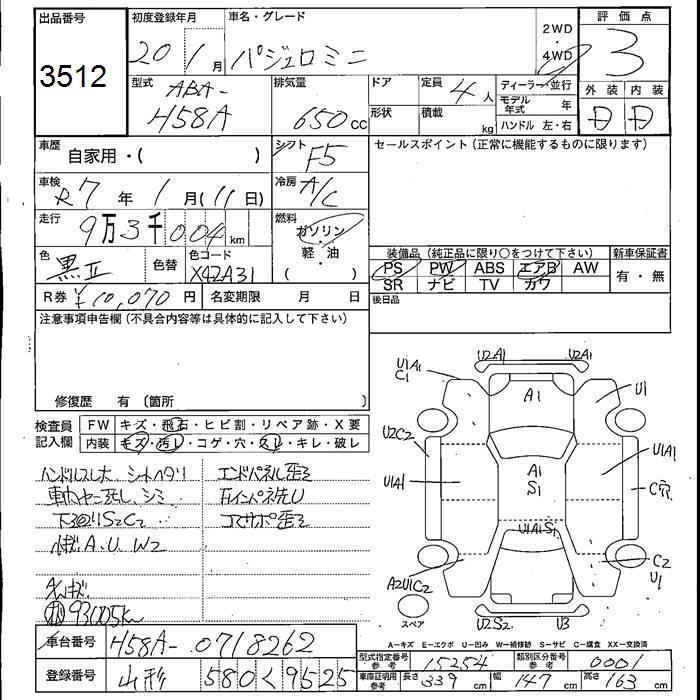 出品番号
3512
初度登録年月
20 1月
車名・グレード
パジェロミニ
2WD
・
4WD
評価点
3
型式
ABA-
H58A
排気量
650cc
ドア
定員
4人
ディーラー・並行
モデル年式 年
形状
積載
kg
ハンドル 左・右
外装 内装
D D
車歴
自家用・( )
シフト
F5
セールスポイント(正常に機能するものに限ります)
車検
R7年 1月(11日)
冷房
A/C
走行
9万3千004km
燃料
ガソリン
・
軽・油
( )
色
黒Ⅱ
色替
色コード
X42A31
装備品(純正品に限り○をつけて下さい)
新車保証書
PS PW ABS エアB AW
SR ナビ TV カワ
有・無
R券 ¥10,070円
名変期限 月 日
後日品
注意事項申告欄(不具合内容等は具体的に記入して下さい)
修復歴 有(箇所
検査員
記入欄
FW キズ・飛石・ヒビ割・リペア跡・X要
内装 キズ・汚レ・コゲ・穴・スレ・キレ・破レ
ハンドルスレ大 シートヘタリ
エンドパネル歪ミ
シミ
下廻りS2C2
コアサポ歪ミ
小キズ A.U. W2
93005km
U1A1
C1
U2A1
U2A1
A1
U1
U2C2
U1A1
U1A1
A1
S1
C穴
U1A1S1
A2U1C2
C2
U1
スペア
U2S2
U3
A-キズ E-エクボ U-凹み W-補修跡 S-サビ C-腐食 XX-交換済
車台番号
H58A-0718262
型式指定番号
参考
15254
類別区分番号
参考
0001
登録番号
山形 580 く 9525
車庫証明用
参考
長さ 339cm
幅 147cm
高さ 163cm